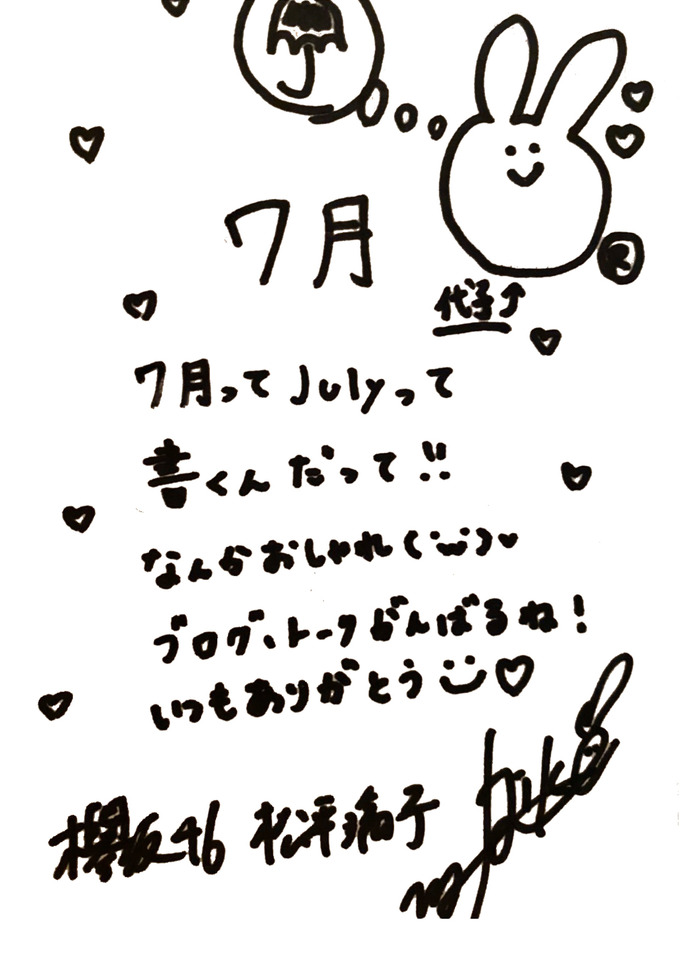 7月
R
代子↑
7月ってJulyって
書くんだって!!
なんかおしゃれ(˙ω˙)♥
ブログ、トークがんばるね!
いつもありがとう
欅坂46 松平璃子